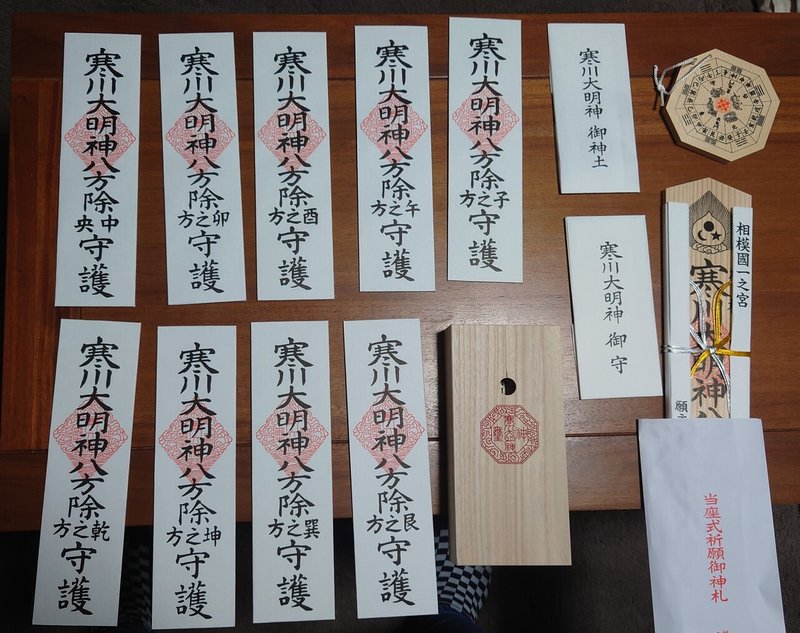 寒川大明神八方除中央守護
寒川大明神八方除卯之方守護
寒川大明神八方除酉之方守護
寒川大明神八方除午之方守護
寒川大明神八方除子之方守護
寒川大明神 御神土
相模國一之宮
寒川大明神八
寒川大明神 御守
寒川大明神八方除乾之方守護
寒川大明神八方除坤之方守護
寒川大明神八方除巽之方守護
寒川大明神八方除艮之方守護
当座式祈願御神札